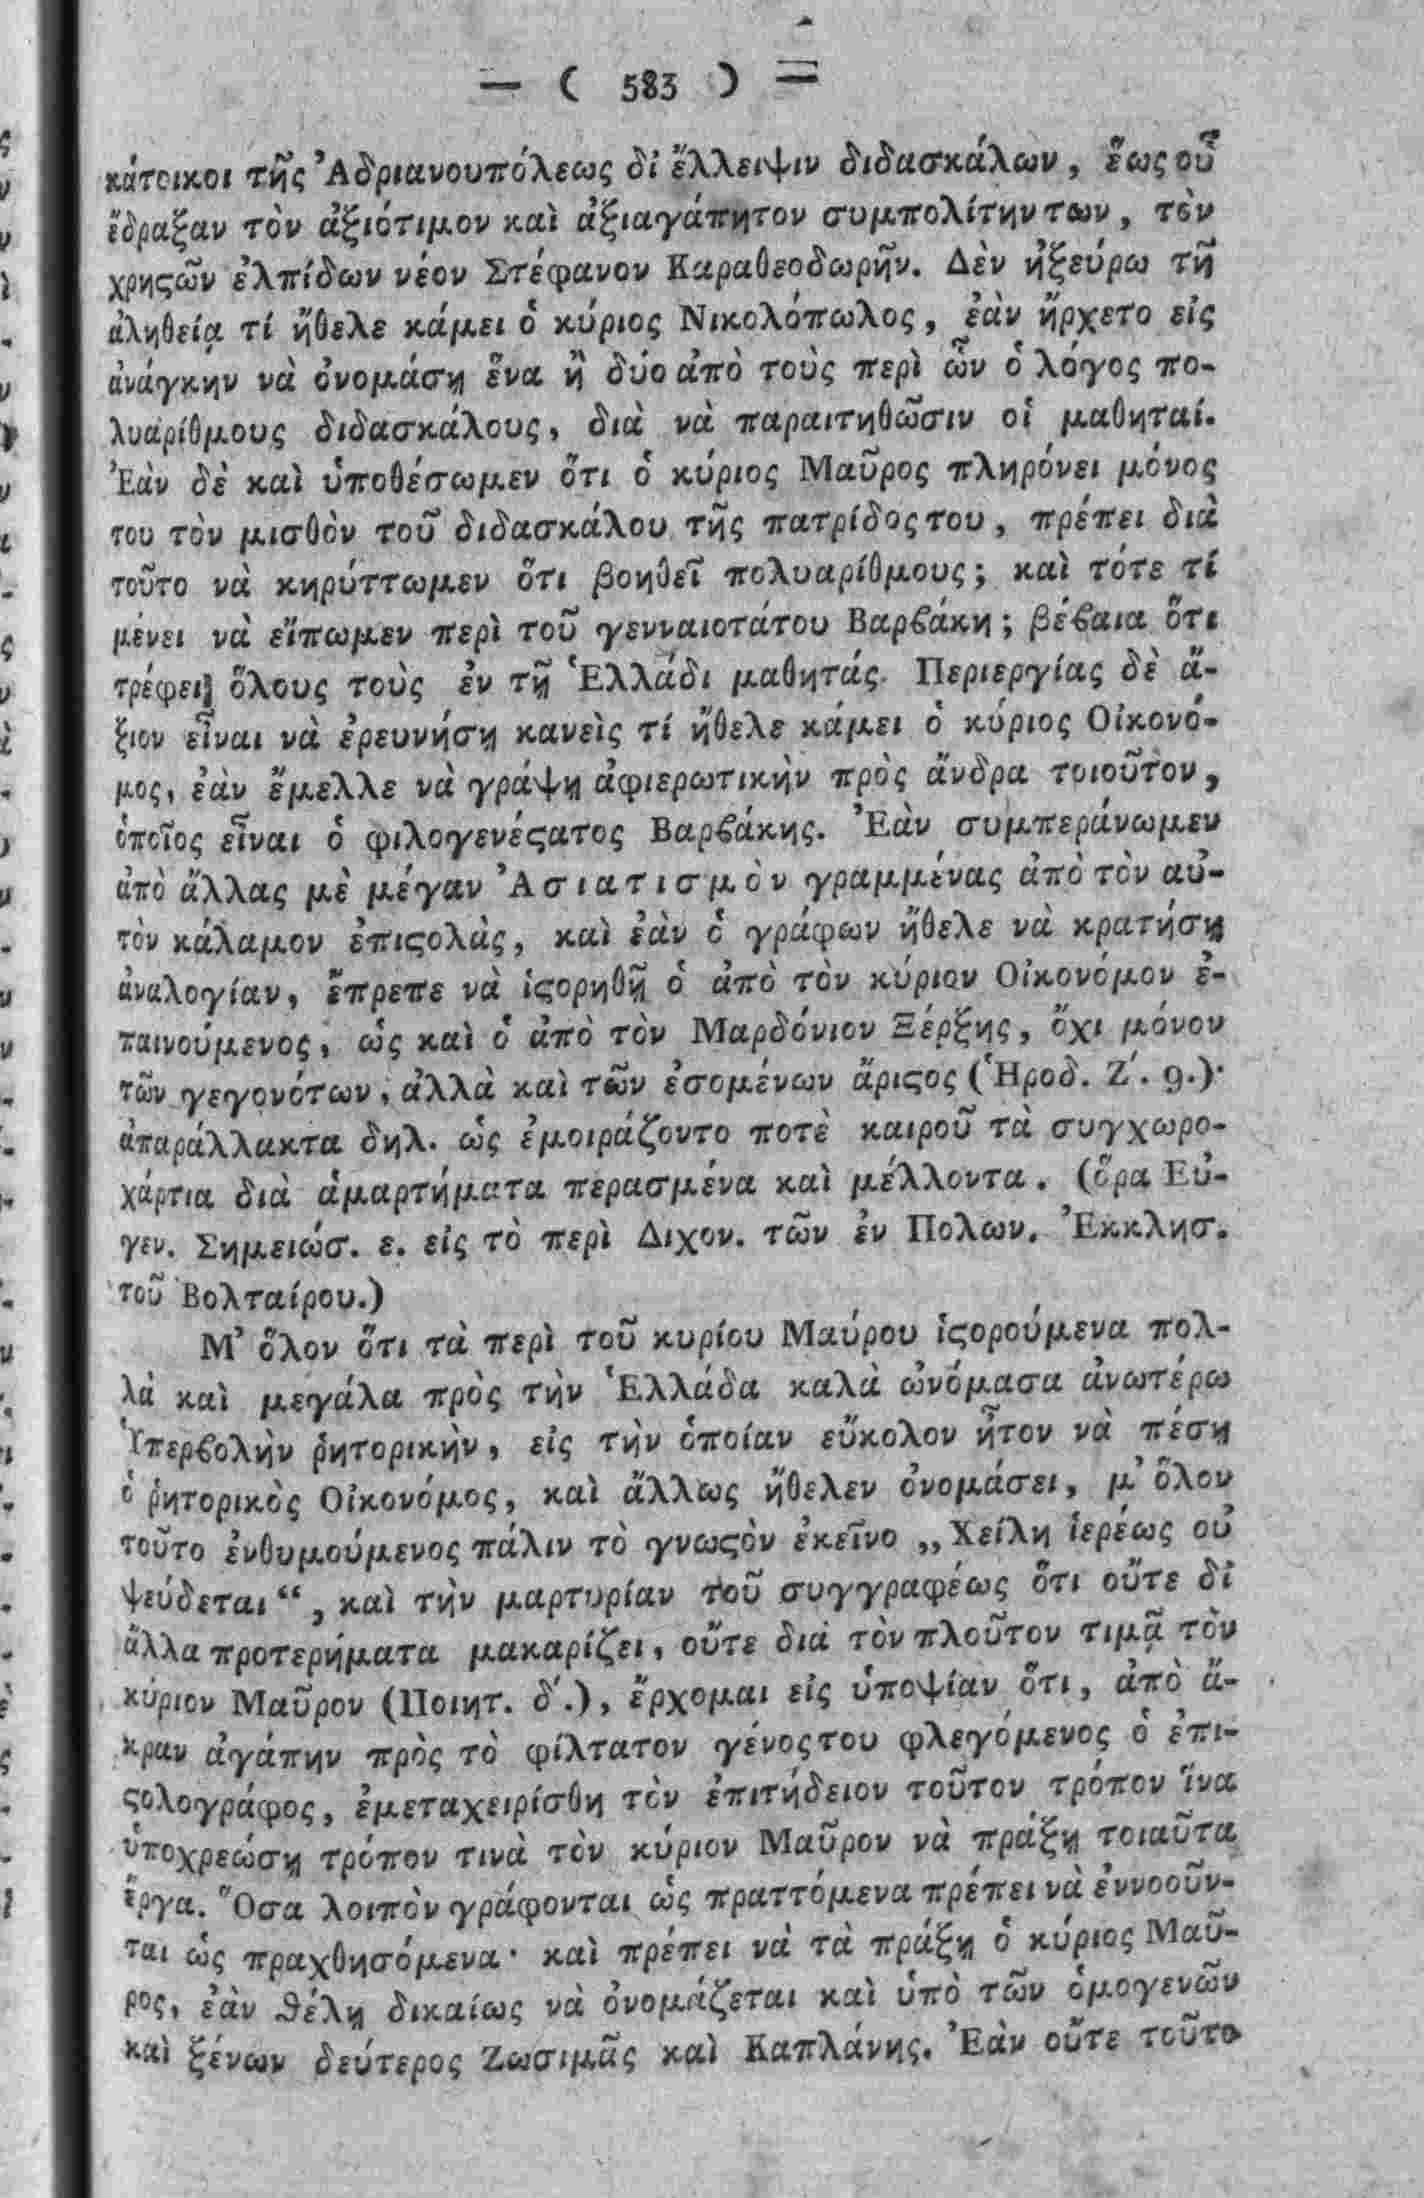 — ( 583 ) —
κάτοικοι τῆς Ἀδριανουπόλεως δἰ ἔλλειψιν διδασκάλων, ἕως οὗ
ἔδραξαν τὸν ἀξιότιμον καὶ ἀξιαγάπητον συμπολίτην των, τὸν
χρηϛῶν ἐλπίδων νέον Στέφανον Καραθεοδωρῆν. Δὲν ἠξεύρω τῇ
ἀληθείᾳ τί ἤθελε κάμει ὁ κύριος Νικολόπωλος, ἐὰν ἤρχετο εἰς
ἀνάγκην νὰ ὀνομάσῃ ἕνα ἢ δύο ἀπὸ τοὺς περὶ ὧν ὁ λόγος πο-
λυαρίθμους διδασκάλους, διὰ νὰ παραιτηθῶσιν οἱ μαθηταί.
Ἐὰν δὲ καὶ ὑποθέσωμεν ὅτι ὁ κύριος Μαῦρος πληρόνει μόνος
του τὸν μισθὸν τοῦ διδασκάλου τῆς πατρίδος του, πρέπει διὰ
τοῦτο νὰ κηρύττωμεν ὅτι βοηθεῖ πολυαρίθμους; καὶ τότε τί
μένει νὰ εἴπωμεν περὶ τοῦ γενναιοτάτου Βαρϐάκη; βέϐαια ὅτι
τρέφει ὅλους τοὺς ἐν τῇ Ἑλλάδι μαθητάς. Περιεργίας δὲ ἄ-
ξιον εἶναι νὰ ἐρευνήσῃ κανεὶς τί ἤθελε κάμει ὁ κύριος Οἰκονό-
μος, ἐὰν ἔμελλε νὰ γράψῃ ἀφιερωτικὴν πρὸς ἄνδρα τοιοῦτον,
ὁποῖος εἶναι ὁ φιλογενέϛατος Βαρϐάκης. Ἐὰν συμπεράνωμεν
ἀπὸ ἄλλας μὲ μέγαν Ἀσιατισμὸν γραμμένας ἀπὸ τὸν αὐ-
τὸν κάλαμον ἐπιϛολὰς, καὶ ἐὰν ὁ γράφων ἤθελε νὰ κρατήσῃ
ἀναλογίαν, ἔπρεπε νὰ ἱϛορηθῇ ὁ ἀπὸ τὸν κύριον Οἰκονόμον ἐ-
παινούμενος, ὡς καὶ ὁ ἀπὸ τὸν Μαρδόνιον Ξέρξης, ὄχι μόνον
τῶν γεγονότων, ἀλλὰ καὶ τῶν ἐσομένων ἄριϛος (Ἡροδ. Ζ΄. 9.)·
ἀπαράλλακτα δηλ. ὡς ἐμοιράζοντο ποτὲ καιροῦ τὰ συγχωρο-
χάρτια διὰ ἁμαρτήματα περασμένα καὶ μέλλοντα. (ὅρα Εὐ-
γεν. Σημειώσ. ε. εἰς τὸ περὶ Διχον. τῶν ἐν Πολων. Ἐκκλησ.
τοῦ Βολταίρου.)
Μ’ ὅλον ὅτι τὰ περὶ τοῦ κυρίου Μαύρου ἱϛορούμενα πολ-
λὰ καὶ μεγάλα πρὸς τὴν Ἑλλάδα καλὰ ὠνόμασα ἀνωτέρω
Ὑπερϐολὴν ῥητορικὴν, εἰς τὴν ὁποίαν εὔκολον ἦτον νὰ πέσῃ
ὁ ῥητορικὸς Οἰκονόμος, καὶ ἄλλως ἤθελεν ὀνομάσει, μ’ ὅλον
τοῦτο ἐνθυμούμενος πάλιν τὸ γνωϛὸν ἐκεῖνο „Χείλη ἱερέως οὐ
ψεύδεται“, καὶ τὴν μαρτυρίαν τοῦ συγγραφέως ὅτι οὔτε δἰ
ἄλλα προτερήματα μακαρίζει, οὔτε διὰ τὸν πλοῦτον τιμᾷ τὸν
κύριον Μαῦρον (Ποιητ. δ΄.), ἔρχομαι εἰς ὑποψίαν ὅτι, ἀπὸ ἄ-
κραν ἀγάπην πρὸς τὸ φίλτατον γένος του φλεγόμενος ὁ ἐπι-
ϛολογράφος, ἐμεταχειρίσθη τὸν ἐπιτήδειον τοῦτον τρόπον ἵνα
ὑποχρεώσῃ τρόπον τινὰ τὸν κύριον Μαῦρον νὰ πράξῃ τοιαῦτα
ἔργα. Ὅσα λοιπὸν γράφονται ὡς πραττόμενα πρέπει νὰ ἐννοοῦν-
ται ὡς πραχθησόμενα· καὶ πρέπει νὰ τὰ πράξῃ ὁ κύριος Μαῦ-
ρος, ἐὰν θέλῃ δικαίως νὰ ὀνομάζεται καὶ ὑπὸ τῶν ὁμογενῶν
καὶ ξένων δεύτερος Ζωσιμᾶς καὶ Καπλάνης. Ἐὰν οὔτε τοῦτο